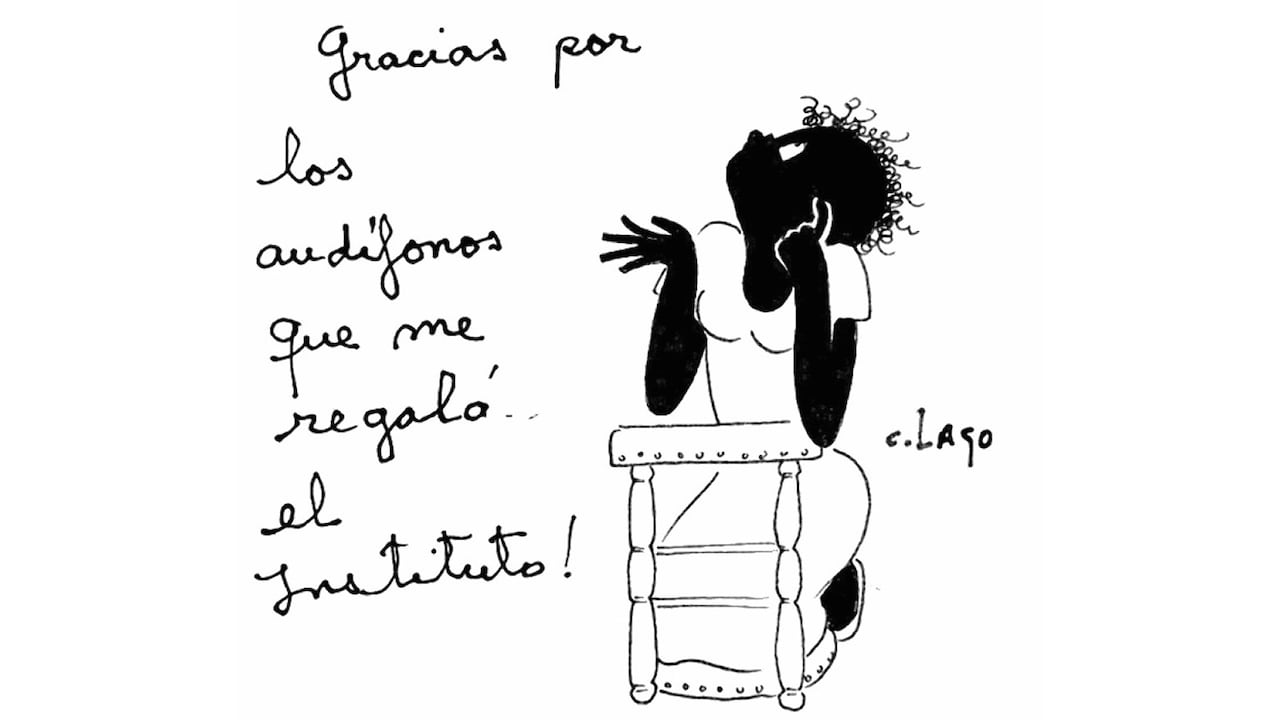 Gracias por
los
audífonos
que me
regaló..
el
Instituto!
C.LAGO